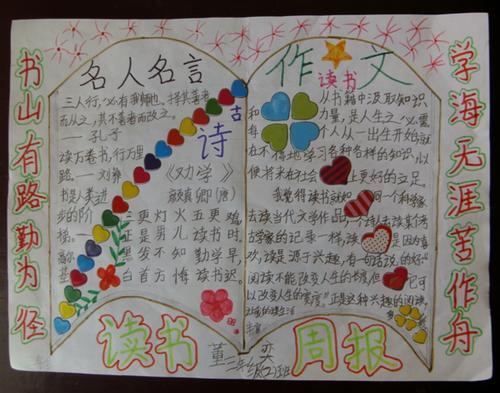 书山有路勤为径
学海无涯苦作舟
名人名言
三人行,必有我师也。择其善者
而从之,其不善者而改之。
——孔子
读万卷书,行万里
路。——刘彝
书是人类进
步的阶
梯。——
高尔
基
古
诗
《劝学》
颜真卿(唐)
三更灯火五更鸡,
正是男儿读书时。
黑发不知勤学早,
白首方悔读书迟。
作文
读书
从书籍中汲取知识
和力量,是人生之必需
每个人从一出生开始,就
在不停地学习各种各样的知识,以
便将来在社会上更好的立足。
我觉得读书就如同一个
去读当代文学作品,
古学家的记录一样,读是因为喜
欢,读是源于兴趣,有一句话说的好:
阅读不能改变人生的长度,但它可
以改变人生的宽度。正是这种兴趣的阅读,
读书
周报
董奕
三年级(2)班